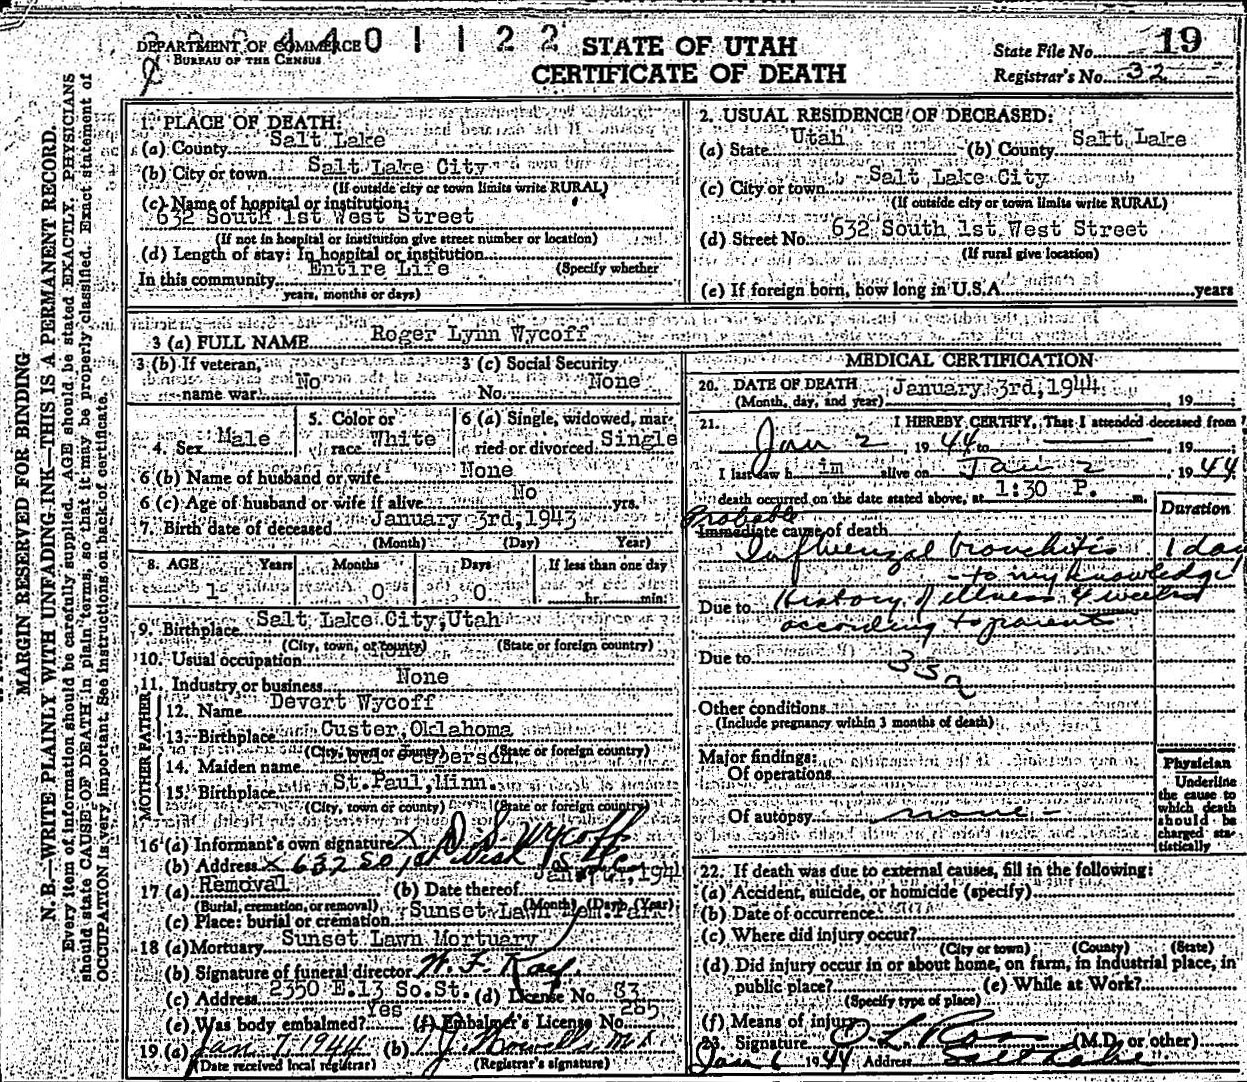 DEPARTMENT OF COMMERCE
BUREAU OF THE CENSUS
STATE OF UTAH
CERTIFICATE OF DEATH
State File No. 19
Registrar's No. 32
MARGIN RESERVED FOR BINDING
N. B.—WRITE PLAINLY WITH UNFADING INK—THIS IS A PERMANENT RECORD.
Every item of information should be carefully supplied. AGE should be stated EXACTLY. PHYSICIANS
should state CAUSE OF DEATH in plain terms, so that it may be properly classified. Exact statement of
OCCUPATION is very important. See instructions on back of certificate.
1. PLACE OF DEATH:
(a) County Salt Lake
(b) City or town Salt Lake City
(If outside city or town limits write RURAL)
(c) Name of hospital or institution:
632 South 1st West Street
(If not in hospital or institution give street number or location)
(d) Length of stay: In hospital or institution
(Specify whether
In this community Entire Life
years, months or days)
2. USUAL RESIDENCE OF DECEASED:
(a) State Utah (b) County Salt Lake
(c) City or town Salt Lake City
(If outside city or town limits write RURAL)
(d) Street No. 632 South 1st West Street
(If rural give location)
(e) If foreign born, how long in U.S.A. years
3 (a) FULL NAME Roger Lynn Wycoff
3 (b) If veteran, name war No
3 (c) Social Security No. None
4. Sex Male
5. Color or race White
6 (a) Single, widowed, married or divorced Single
6 (b) Name of husband or wife None
6 (c) Age of husband or wife if alive No yrs.
7. Birth date of deceased January 3rd, 1943
(Month) (Day) Year)
8. AGE Years Months Days If less than one day
1 0 0 hr. min.
9. Birthplace Salt Lake City, Utah
(City, town, or county) (State or foreign country)
10. Usual occupation
11. Industry or business None
FATHER
12. Name Devert Wycoff
13. Birthplace Custer, Oklahoma
(City, town or county) (State or foreign country)
MOTHER
14. Maiden name
15. Birthplace St. Paul, Minn.
(City, town or county) (State or foreign country)
16 (a) Informant's own signature X D S Wycoff
(b) Address X 632 So 1st West S L C
17 (a) Removal (b) Date thereof 1944
(Burial, cremation, or removal) (Month) (Day) (Year)
(c) Place: burial or cremation Sunset Lawn Mem. Park
18 (a) Mortuary Sunset Lawn Mortuary
(b) Signature of funeral director W. F. Kay
(c) Address 2350 E. 13 So. St. (d) License No. 83
(e) Was body embalmed? Yes (f) Embalmer's License No. 265
19 (a) Jan 7, 1944 (b)
(Date received local registrar) (Registrar's signature)
MEDICAL CERTIFICATION
20. DATE OF DEATH January 3rd, 1944 , 19 ;
(Month, day, and year)
21. I HEREBY CERTIFY, That I attended deceased from
Jan 2 , 1944 to , 19 .
I last saw h im alive on Jan 2 , 1944
death occurred on the date stated above, at 1:30 P. m.
Duration
Probable
Immediate cause of death
Influenzal bronchitis 1 day
- to my knowledge
Due to History of illness 4 weeks
according to parents
Due to 33a
Other conditions
(Include pregnancy within 3 months of death)
Major findings:
Of operations
Of autopsy none -
Physician
Underline
the cause to
which death
should be
charged sta-
tistically
22. If death was due to external causes, fill in the following:
(a) Accident, suicide, or homicide (specify)
(b) Date of occurrence
(c) Where did injury occur?
(City or town) (County) (State)
(d) Did injury occur in or about home, on farm, in industrial place, in
public place? (e) While at Work?
(Specify type of place)
(f) Means of injury
23. Signature (M.D. or other)
Jan 6 1944 Address Salt Lake